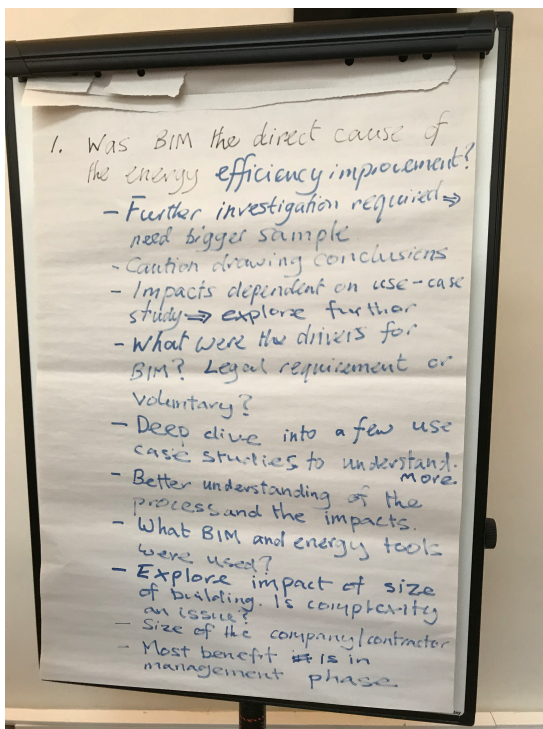 1. Was BIM the direct cause of
the energy efficiency improvement?
- Further investigation required ⇒
need bigger sample
- Caution drawing conclusions
- Impacts dependent on use-case
study ⇒ explore further
- What were the drivers for
BIM? Legal requirement or
voluntary?
- Deep dive into a few use
case studies to understand.
more.
- Better understanding of the
process and the impacts.
- What BIM and energy tools
were used?
- Explore impact of size
of building. Is complexity
an issue?
- Size of the company/contractor
- Most benefit is in
management phase